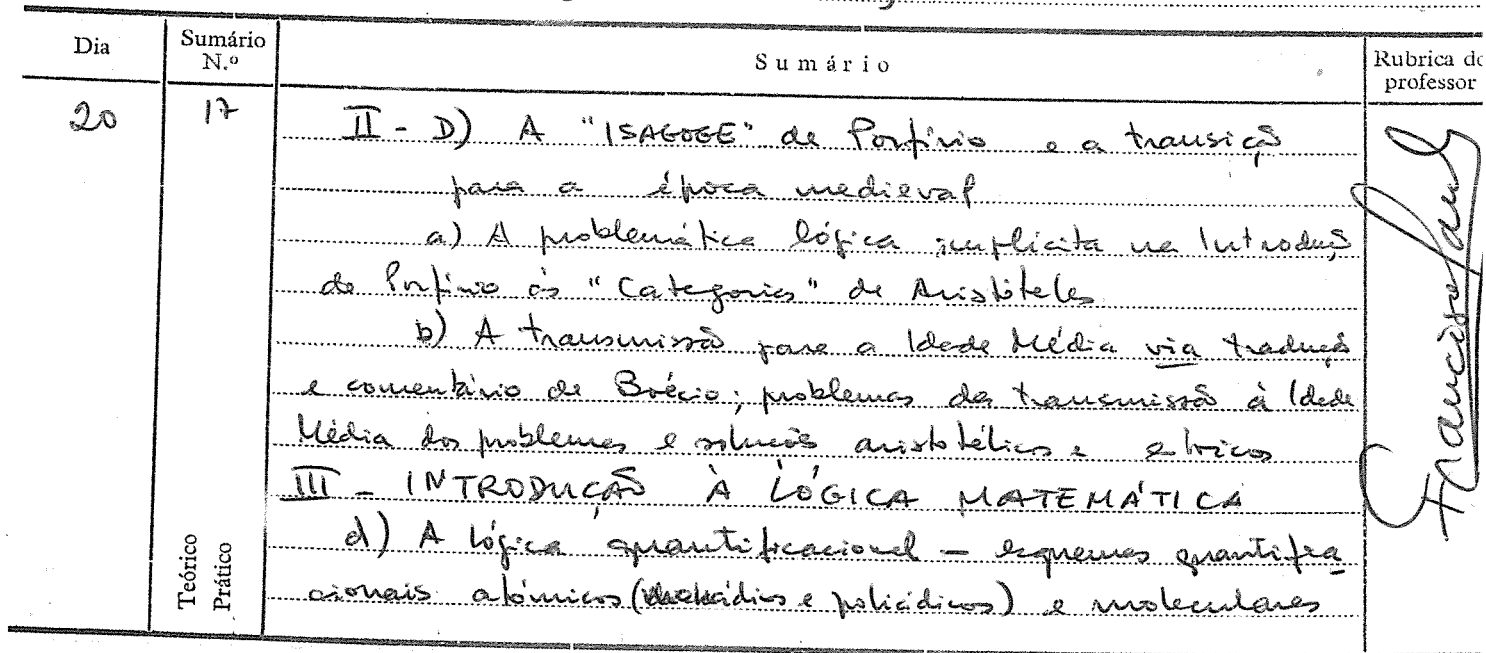 Dia
Sumário N.º
Sumário
Rubrica do professor
20
17
II - D) A "ISAGOGE" de Porfírio e a transição
para a época medieval
a) A problemática lógica implícita na Introdução
de Porfírio às "Categorias" de Aristóteles
b) A transmissão para a Idade Média via tradução
e comentário de Boécio; problemas da transmissão à Idade
Média dos problemas e soluções aristotélicos e
III - INTRODUÇÃO À LÓGICA MATEMÁTICA
d) A lógica quantificacional - esquemas quantifica
cionais atómicos (monádicos e poliádicos) e moleculares
Teórico
Prático
Francisco